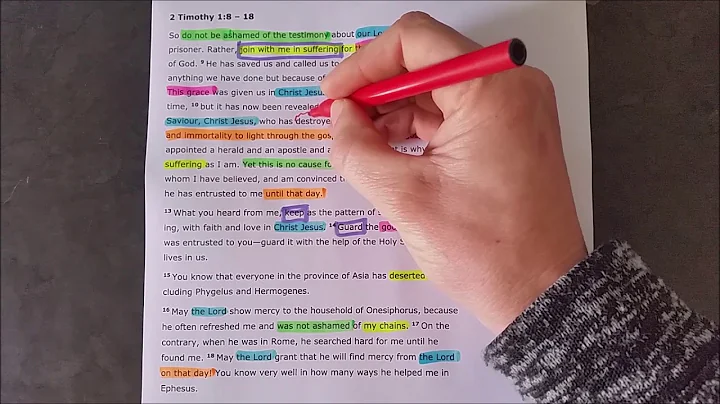 2 Timothy 1:8 – 18
So do not be ashamed of the testimony about our
prisoner. Rather, join with me in suffering for
of God. ⁹ He has saved us and called us to
anything we have done but because of
This grace was given us in Christ Jesus
time, ¹⁰ but it has now been revealed
Saviour, Christ Jesus, who has destroyed
and immortality to light through the
appointed a herald and an apostle and a is why
suffering as I am. Yet this is no cause
whom I have believed, and am convinced
he has entrusted to me until that day.
¹³ What you heard from me, keep as the pattern of
ing, with faith and love in Christ Jesus. ¹⁴ Guard the
was entrusted to you—guard it with the help of the Holy
lives in us.
¹⁵ You know that everyone in the province of Asia has deserted
cluding Phygelus and Hermogenes.
¹⁶ May the Lord show mercy to the household of Onesiphorus, because
he often refreshed me and was not ashamed of my chains. ¹⁷ On the
contrary, when he was in Rome, he searched hard for me until he
found me. ¹⁸ May the Lord grant that he will find mercy from the Lord
on that day! You know very well in how many ways he helped me in
Ephesus.